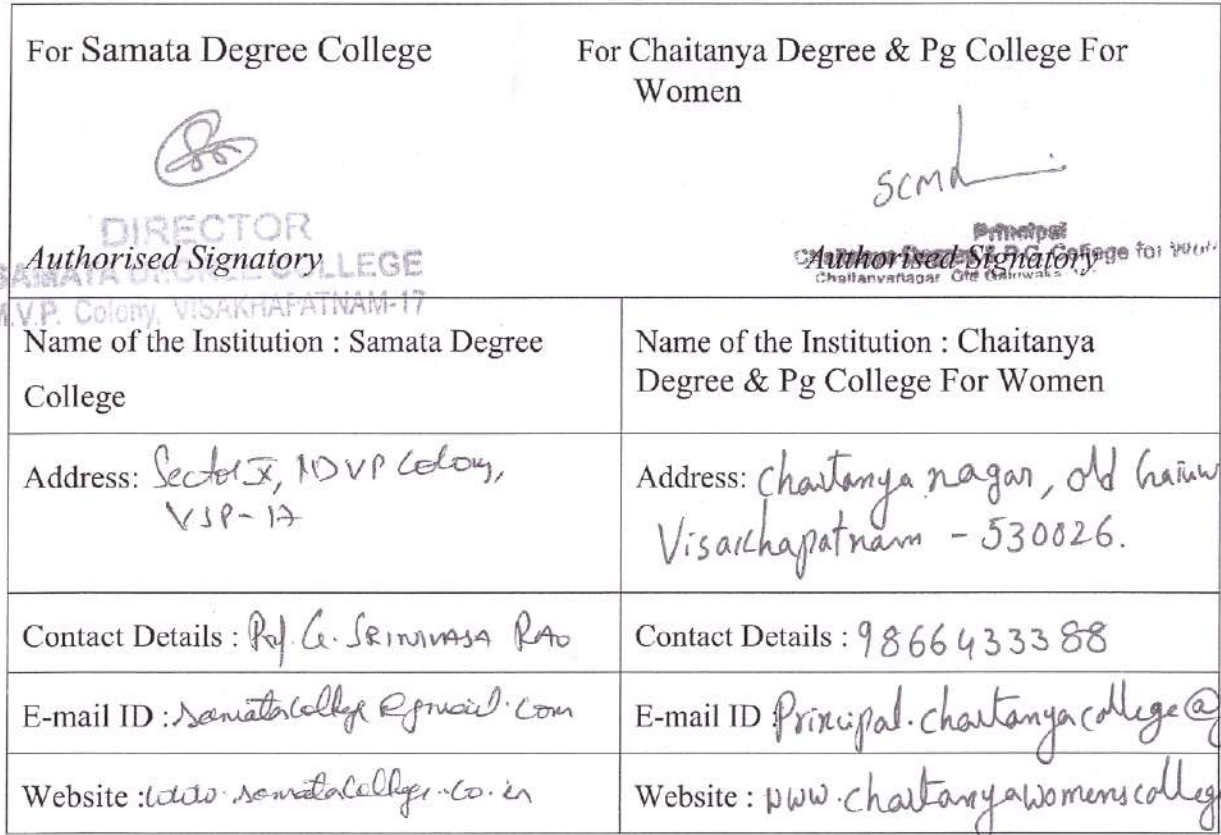 For Samata Degree College
For Chaitanya Degree & Pg College For
Women
scmd
DIRECTOR
Authorised Signatory
SAMATA DEGREE COLLEGE
M.V.P. Colony, VISAKHAPATNAM-17
Principal
Authorised Signatory
College for
Chaitanyanagar Old
Name of the Institution : Samata Degree
College
Name of the Institution : Chaitanya
Degree & Pg College For Women
Address: Sector X, MVP Colony,
VSP-17
Address: Chaitanya nagar, old
Visakhapatnam - 530026.
Contact Details : Prof. G. SRINIVASA RAO
Contact Details : 9866433388
E-mail ID : samatacollege@gmail.com
E-mail ID : Principal.chaitanyacollege@
Website : www.samatacollege.co.in
Website : www.chaitanyawomenscolleg